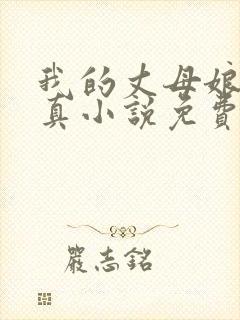 我的丈母娘
真小説免費
嚴志銘